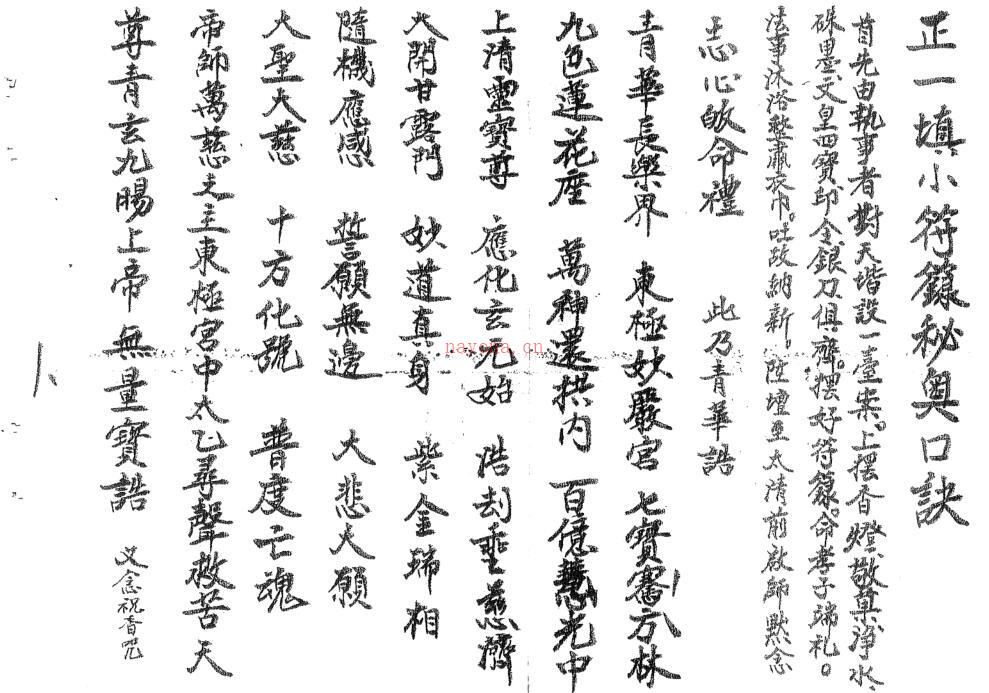 正一填小符籙秘奧口訣
首先由執事者對天堦設一臺案。上擺香燈敬菓淨水、
硃墨文皇四寶印令銀刀俱齊。擺好符籙。命孝子端礼。
法事沐浴整肅衣巾。吐故納新。陞壇至太清前啟師默念
志心皈命禮 此乃青華誥
青華長樂界 東極妙嚴宮 七寶騫万林
九色蓮花座 萬神還拱内 百億慧光中
上清靈寶尊 應化玄元始 浩劫垂慈濟
大開甘露門 妙道真身 紫金瑞相
隨機應感 誓願無邊 大悲大願
大聖大慈 十方化號 普度亡魂
帝師萬慈之主東極宮中太乙尋聲救苦天
尊青玄九暘上帝無量寶誥 又念祝香咒
nayona.cn